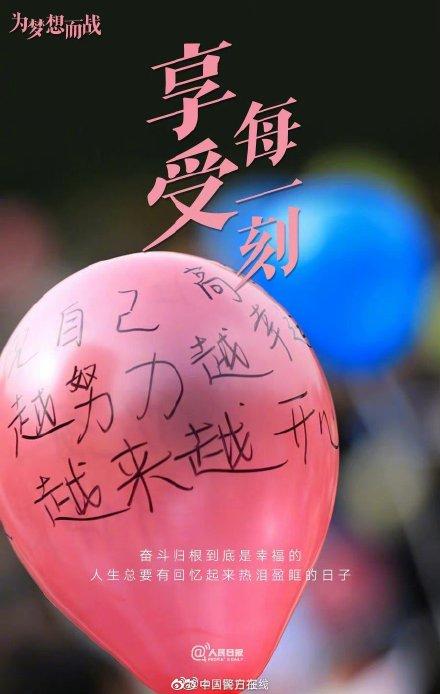 为梦想而战
享受
每一刻
自己 高
越努力越幸
越来越开心
奋斗归根到底是幸福的
人生总要有回忆起来热泪盈眶的日子
@人民日报
PEOPLE'S DAILY
@中国警方在线